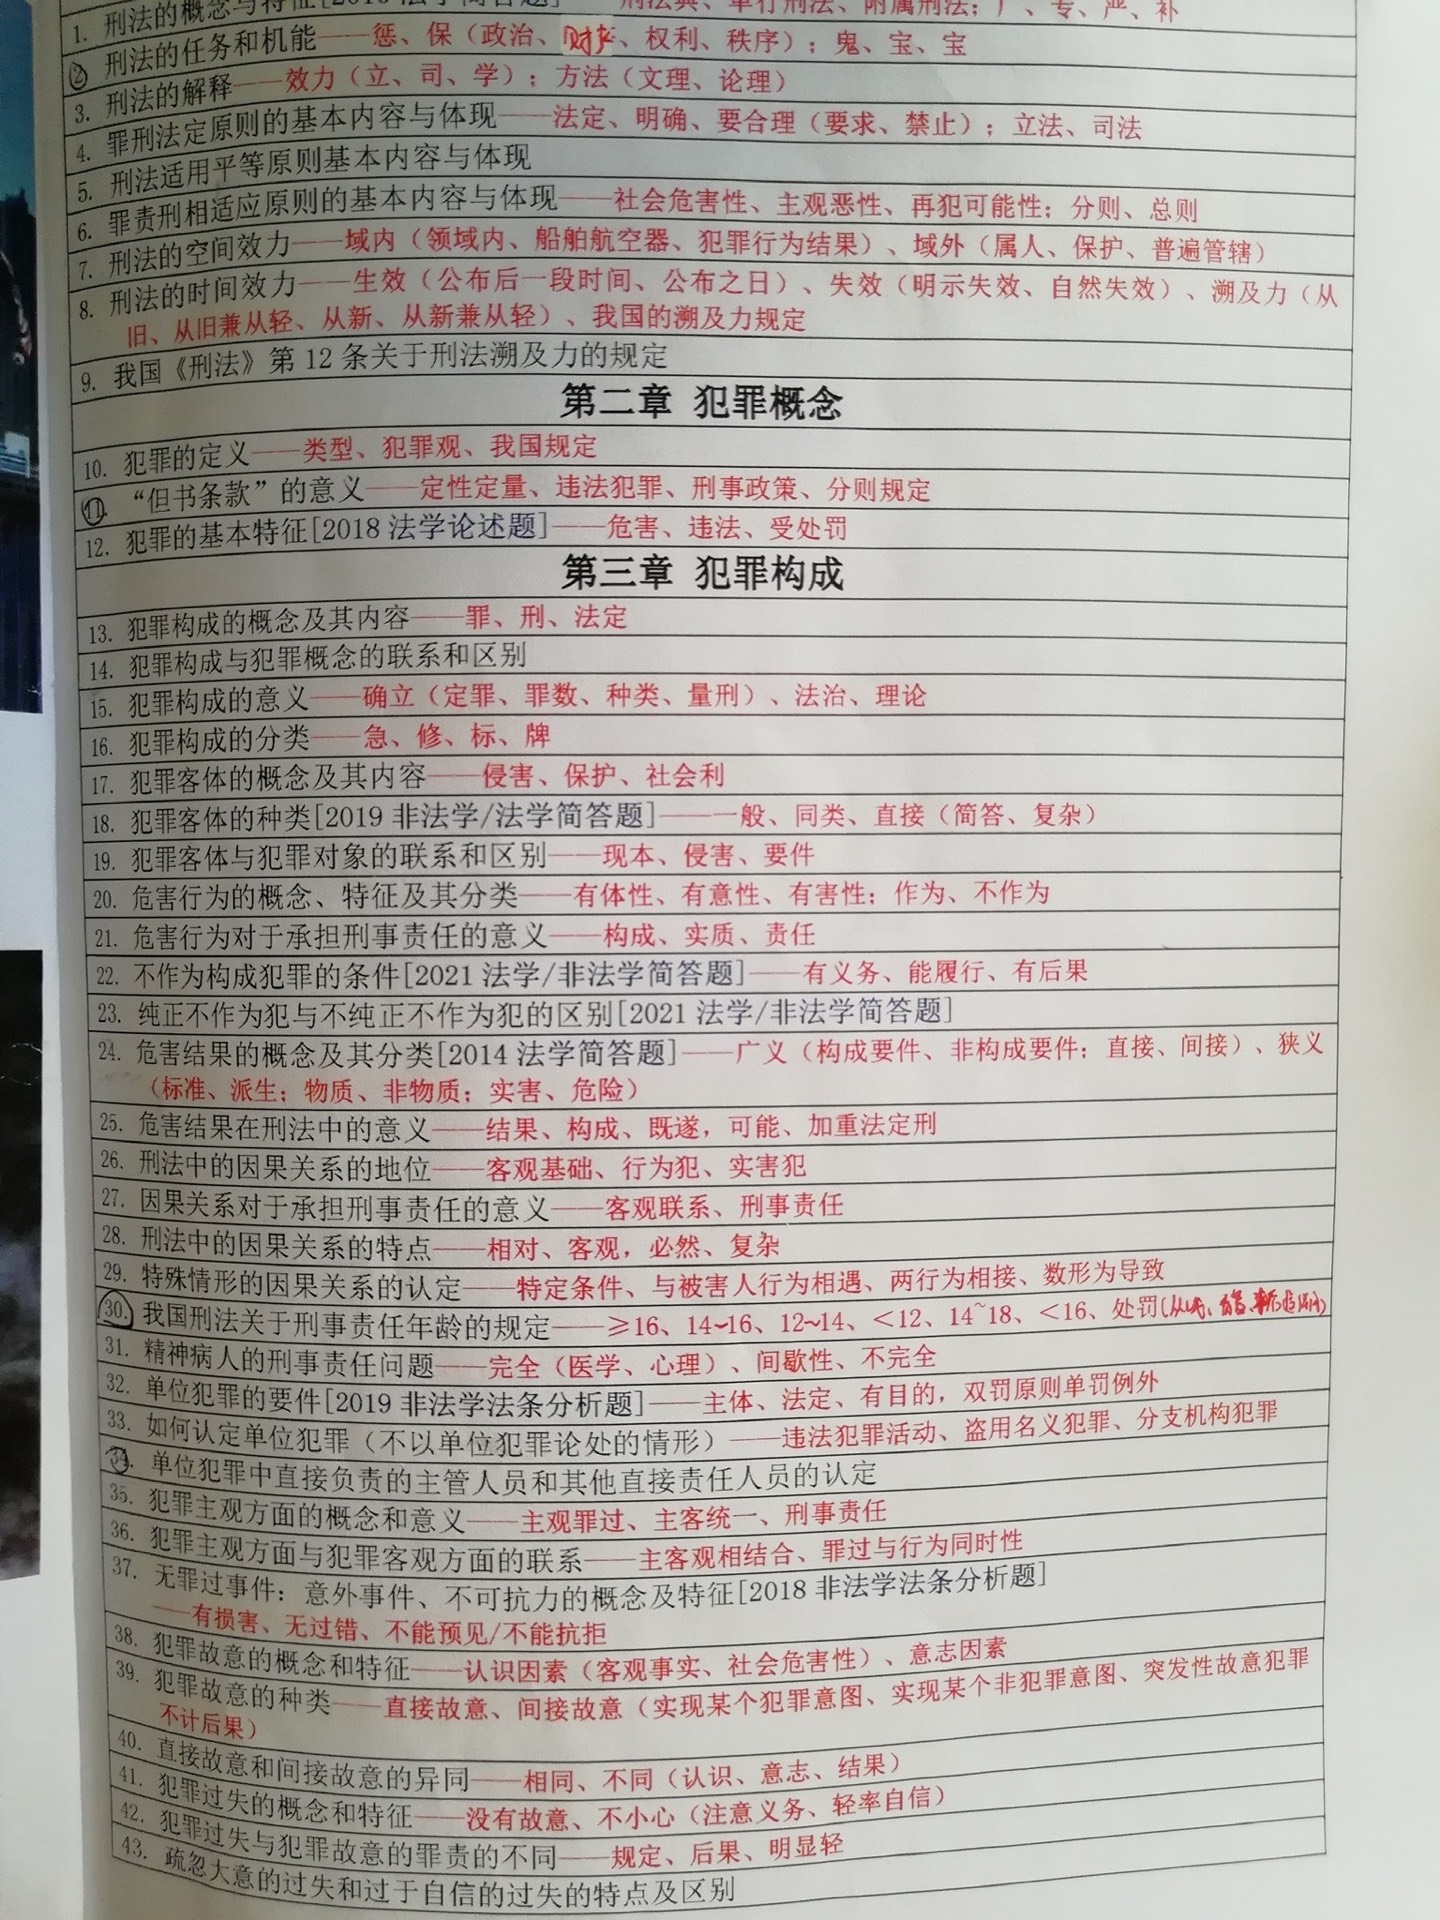 1. 刑法的概念与特征[2019法学简答题]——刑法典、单行刑法、附属刑法；广、专、严、补
2 刑法的任务和机能——惩、保（政治、财产、权利、秩序）；鬼、宝、宝
3. 刑法的解释——效力（立、司、学）；方法（文理、论理）
4. 罪刑法定原则的基本内容与体现——法定、明确、要合理（要求、禁止）；立法、司法
5. 刑法适用平等原则基本内容与体现
6. 罪责刑相适应原则的基本内容与体现——社会危害性、主观恶性、再犯可能性；分则、总则
7. 刑法的空间效力——域内（领域内、船舶航空器、犯罪行为结果）、域外（属人、保护、普遍管辖）
8. 刑法的时间效力——生效（公布后一段时间、公布之日）、失效（明示失效、自然失效）、溯及力（从
旧、从旧兼从轻、从新、从新兼从轻）、我国的溯及力规定
9. 我国《刑法》第 12 条关于刑法溯及力的规定
第二章 犯罪概念
10. 犯罪的定义——类型、犯罪观、我国规定
11. “但书条款”的意义——定性定量、违法犯罪、刑事政策、分则规定
12. 犯罪的基本特征[2018 法学论述题]——危害、违法、受处罚
第三章 犯罪构成
13. 犯罪构成的概念及其内容——罪、刑、法定
14. 犯罪构成与犯罪概念的联系和区别
15. 犯罪构成的意义——确立（定罪、罪数、种类、量刑）、法治、理论
16. 犯罪构成的分类——急、修、标、牌
17. 犯罪客体的概念及其内容——侵害、保护、社会利
18. 犯罪客体的种类[2019 非法学/法学简答题]——一般、同类、直接（简答、复杂）
19. 犯罪客体与犯罪对象的联系和区别——现本、侵害、要件
20. 危害行为的概念、特征及其分类——有体性、有意性、有害性；作为、不作为
21. 危害行为对于承担刑事责任的意义——构成、实质、责任
22. 不作为构成犯罪的条件[2021 法学/非法学简答题]——有义务、能履行、有后果
23. 纯正不作为犯与不纯正不作为犯的区别[2021 法学/非法学简答题]
24. 危害结果的概念及其分类[2014 法学简答题]——广义（构成要件、非构成要件；直接、间接）、狭义
（标准、派生；物质、非物质；实害、危险）
25. 危害结果在刑法中的意义——结果、构成、既遂，可能、加重法定刑
26. 刑法中的因果关系的地位——客观基础、行为犯、实害犯
27. 因果关系对于承担刑事责任的意义——客观联系、刑事责任
28. 刑法中的因果关系的特点——相对、客观，必然、复杂
29. 特殊情形的因果关系的认定——特定条件、与被害人行为相遇、两行为相接、数形为导致
30. 我国刑法关于刑事责任年龄的规定——≥16、14~16、12~14、＜12、14~18、＜16、处罚
31. 精神病人的刑事责任问题——完全（医学、心理）、间歇性、不完全
32. 单位犯罪的要件[2019 非法学法条分析题]——主体、法定、有目的，双罚原则单罚例外
33. 如何认定单位犯罪（不以单位犯罪论处的情形）——违法犯罪活动、盗用名义犯罪、分支机构犯罪
34. 单位犯罪中直接负责的主管人员和其他直接责任人员的认定
35. 犯罪主观方面的概念和意义——主观罪过、主客统一、刑事责任
36. 犯罪主观方面与犯罪客观方面的联系——主客观相结合、罪过与行为同时性
37. 无罪过事件：意外事件、不可抗力的概念及特征[2018 非法学法条分析题]
——有损害、无过错、不能预见/不能抗拒
38. 犯罪故意的概念和特征——认识因素（客观事实、社会危害性）、意志因素
39. 犯罪故意的种类——直接故意、间接故意（实现某个犯罪意图、实现某个非犯罪意图、突发性故意犯罪
不计后果）
40. 直接故意和间接故意的异同——相同、不同（认识、意志、结果）
41. 犯罪过失的概念和特征——没有故意、不小心（注意义务、轻率自信）
42. 犯罪过失与犯罪故意的罪责的不同——规定、后果、明显轻
43. 疏忽大意的过失和过于自信的过失的特点及区别